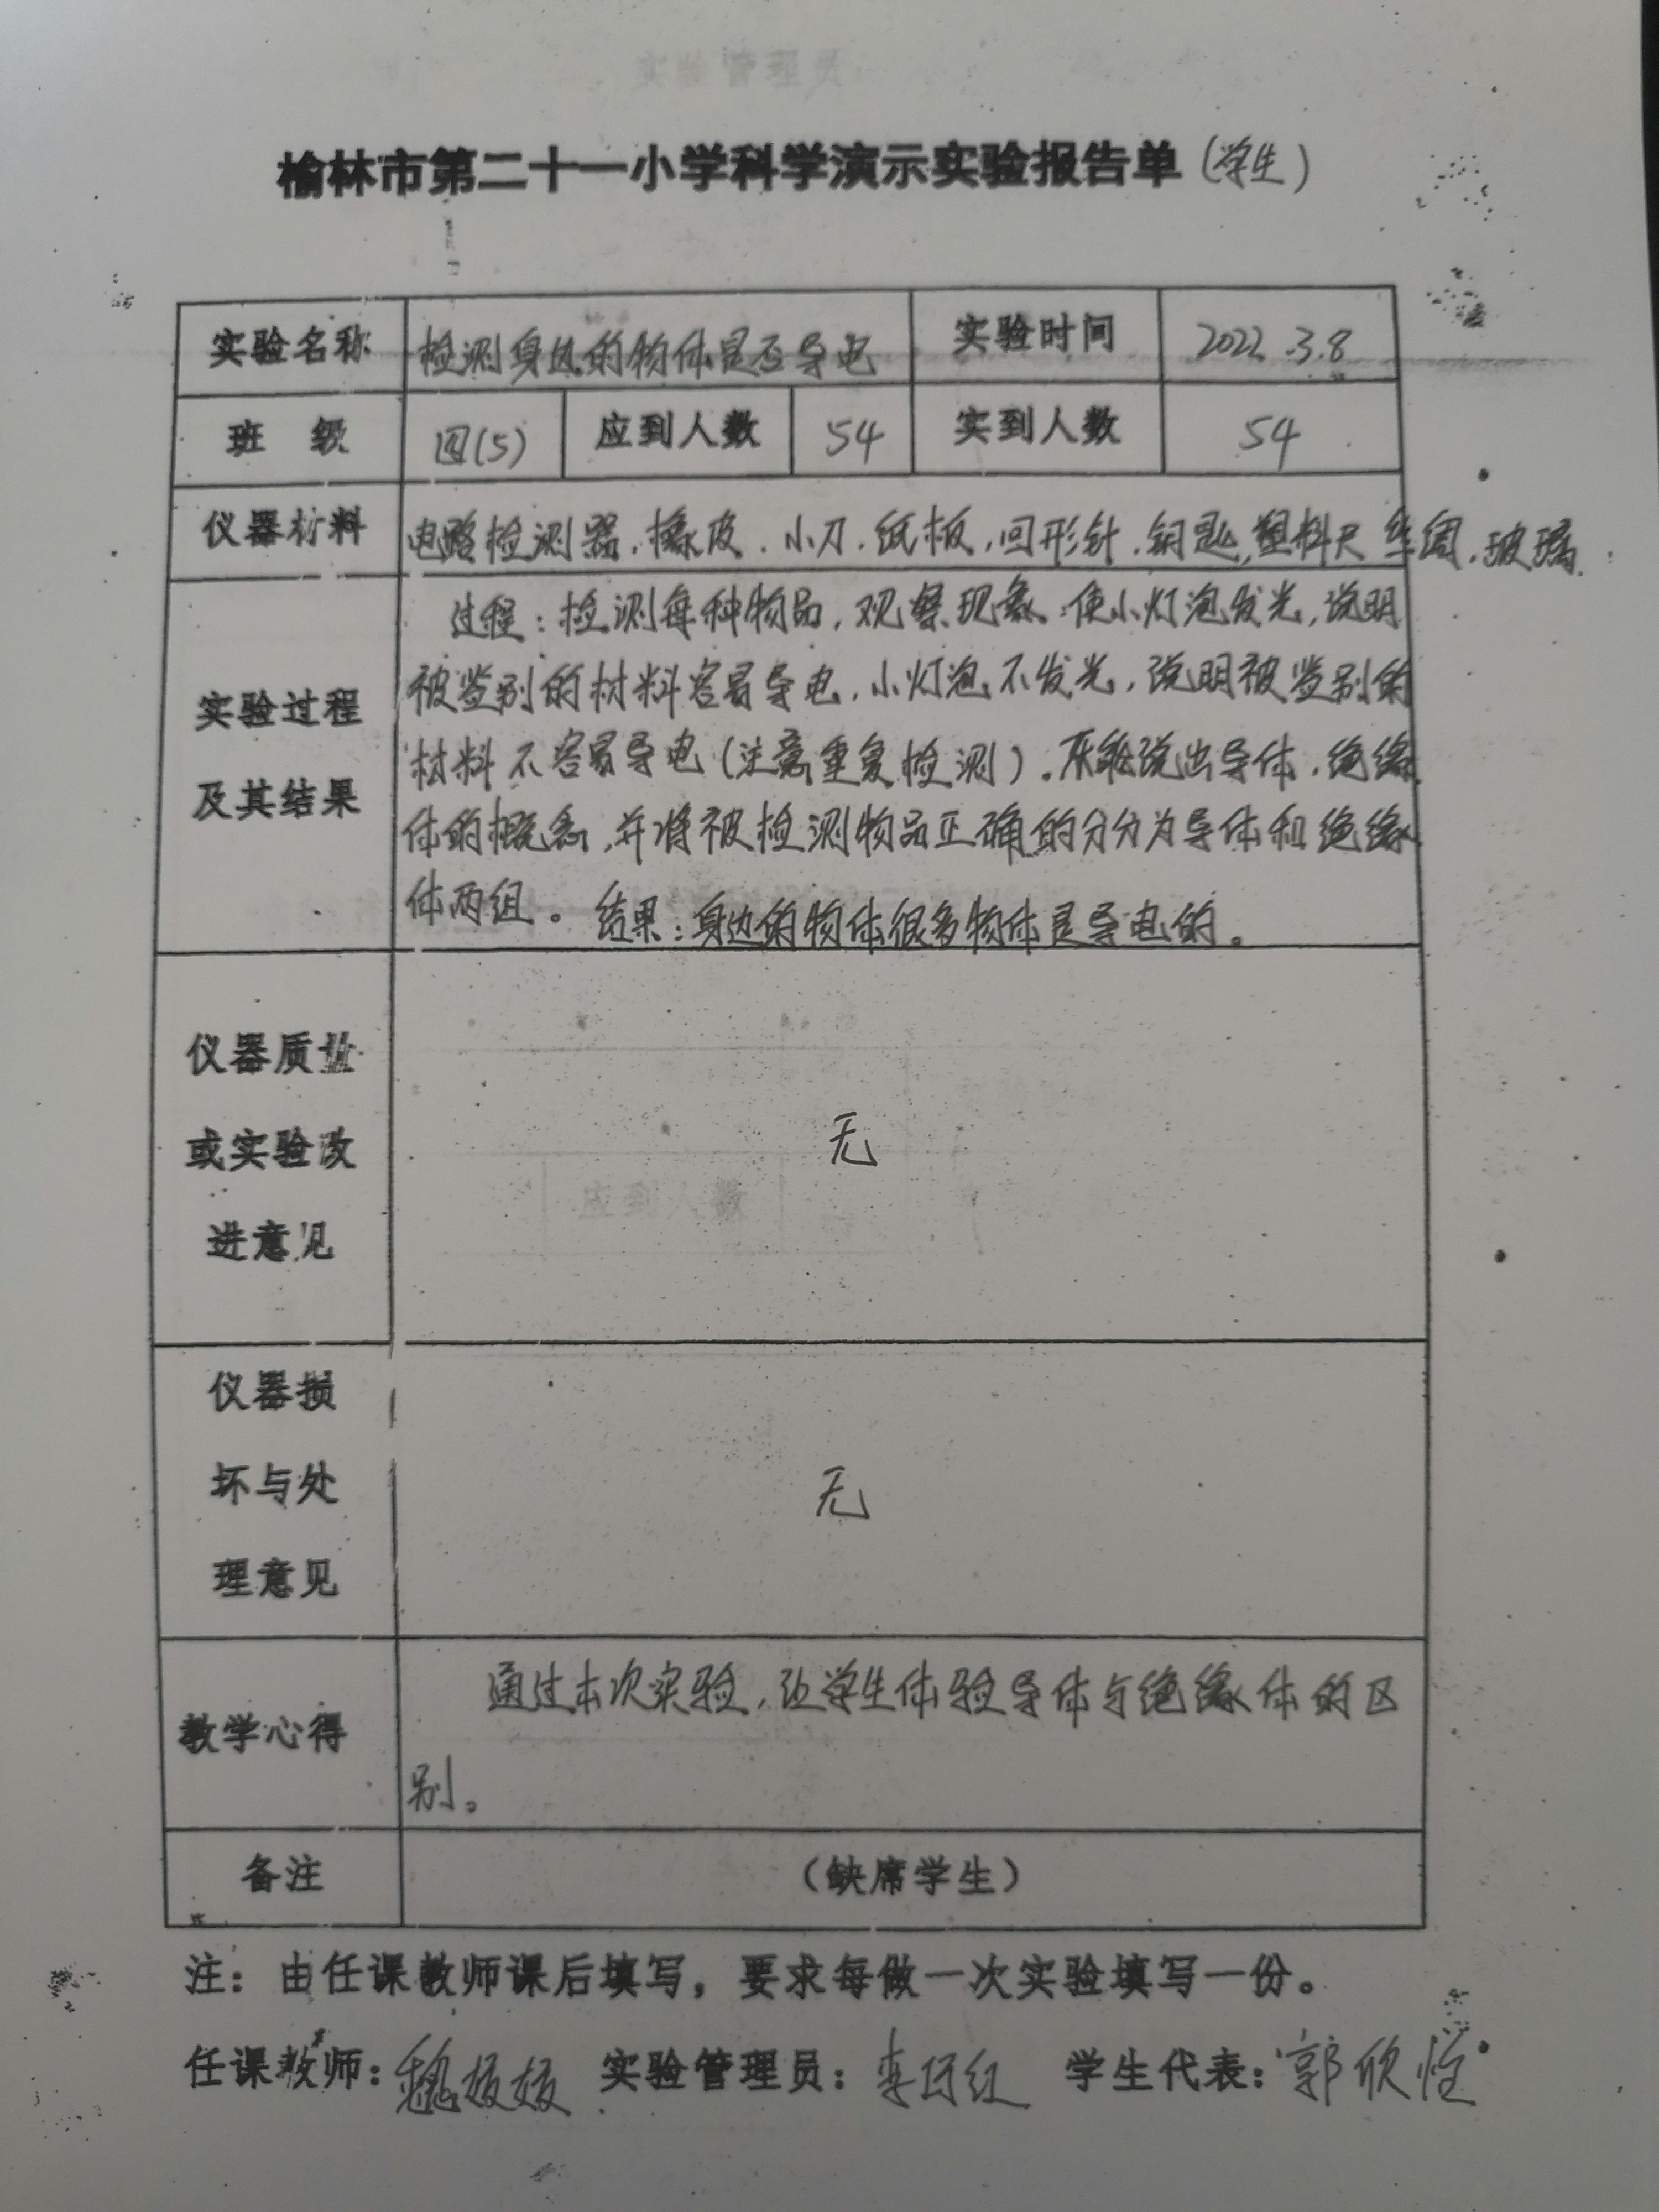 榆林市第二十一小学科学演示实验报告单(学生)
实验名称 检测身边的物体是否导电 实验时间 2022.3.8
班 级 四(5) 应到人数 54 实到人数 54
仪器材料 电路检测器.橡皮.小刀.纸板.回形针.钥匙,塑料尺 丝绸.玻璃.
实验过程
及其结果
过程:检测每种物品,观察现象:使小灯泡发光,说明
被鉴别的材料容易导电.小灯泡不发光,说明被鉴别的
材料不容易导电(注意重复检测)。能说出导体.绝缘
体的概念,并将被检测物品正确的分分为导体和绝缘
体两组。结果:身边的物体很多物体是导电的。
仪器质量
或实验改
进意见
无
仪器损
坏与处
理意见
无
教学心得
通过本次实验,让学生体验导体与绝缘体的区
别。
备注 (缺席学生)
注:由任课教师课后填写,要求每做一次实验填写一份。
任课教师:魏 实验管理员:李 红 学生代表:郭欣
实验管理员
应到人数